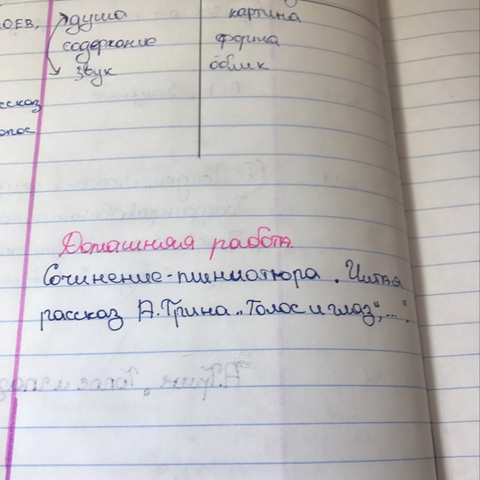 оев, душа картина
содержание форма
звук облик
ссказ
олос
Домашняя работа
Сочинение-миниатюра. Читая
рассказ А.Грина „Голос и глаз“,...“.